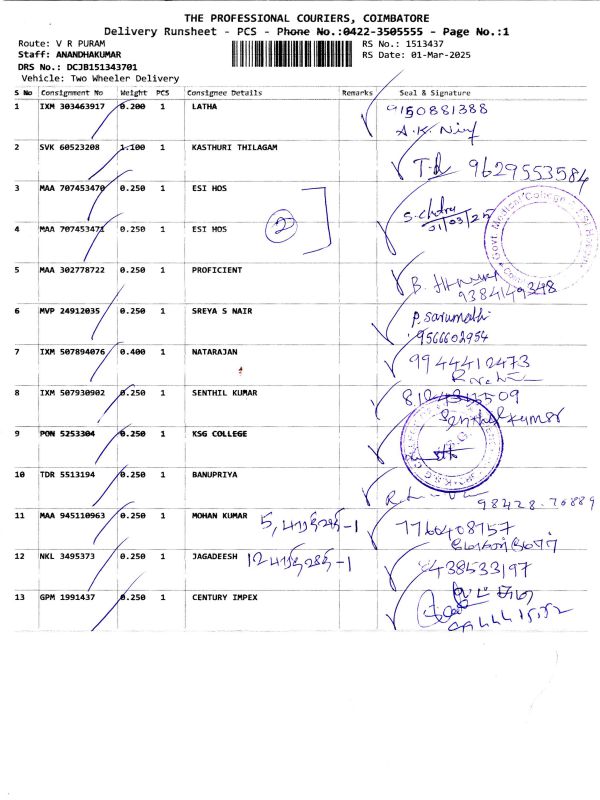 THE PROFESSIONAL COURIERS, COIMBATORE
Delivery Runsheet - PCS - Phone No.:0422-3505555 - Page No.:1
Route: V R PURAM
RS No.: 1513437
Staff: ANANDHAKUMAR
RS Date: 01-Mar-2025
DRS No.: DCJB151343701
Vehicle: Two Wheeler Delivery
S No Consignment No Weight PCS Consignee Details Remarks Seal & Signature
1 IXM 303463917 0.200 1 LATHA 9150881388
2 SVK 60523208 1.100 1 KASTHURI THILAGAM 9629553584
3 MAA 707453470 0.250 1 ESI HOS
01/03/25
2
4 MAA 707453471 0.250 1 ESI HOS
Govt. Medical College
5 MAA 302778722 0.250 1 PROFICIENT
9384149348
6 MVP 24912035 0.250 1 SREYA S NAIR P. Sarumathi
9566602954
7 IXM 507894076 0.400 1 NATARAJAN 9944412473
8 IXM 507930902 0.250 1 SENTHIL KUMAR
Senthil kumar
9 PON 5253304 0.250 1 KSG COLLEGE
10 TDR 5513194 0.250 1 BANUPRIYA
98428-70889
11 MAA 945110963 0.250 1 MOHAN KUMAR 7760408757
12 NKL 3495373 0.250 1 JAGADEESH 8438533197
13 GPM 1991437 0.250 1 CENTURY IMPEX